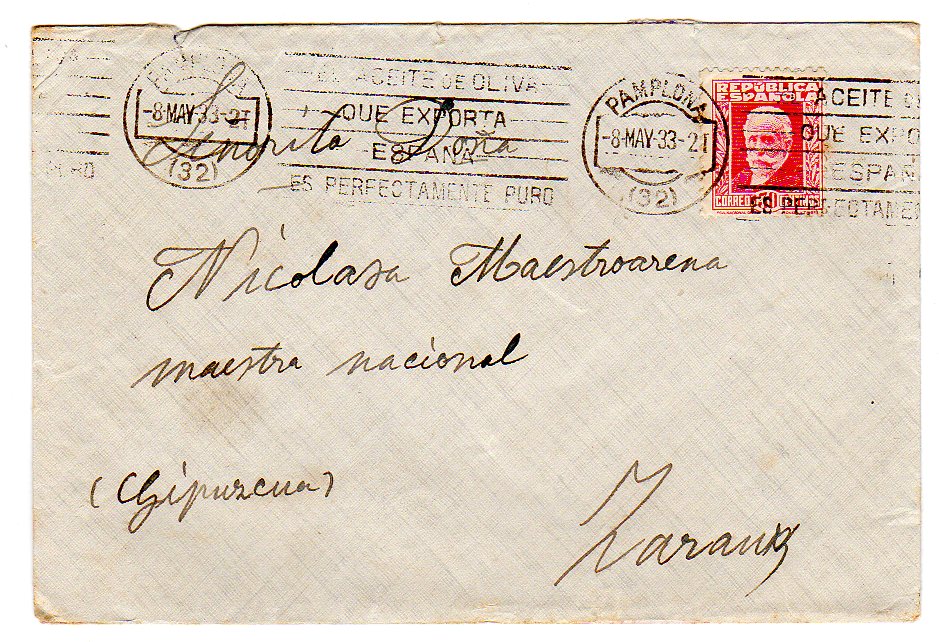 PAMPLONA
-8.MAY.33-2T
(32)
EL ACEITE DE OLIVA
QUE EXPORTA
ESPAÑA
ES PERFECTAMENTE PURO
PURO
PAMPLONA
-8.MAY.33-2T
(32)
REPUBLICA
ESPAÑOLA
CORREOS 30 CTS
ACEITE DE
QUE EXPO
ESPAÑ
ES PERFECTAMEN
Señorita Doña
Nicolasa Maestroarena
maestra nacional
(Gipuzcua)
Zarauz